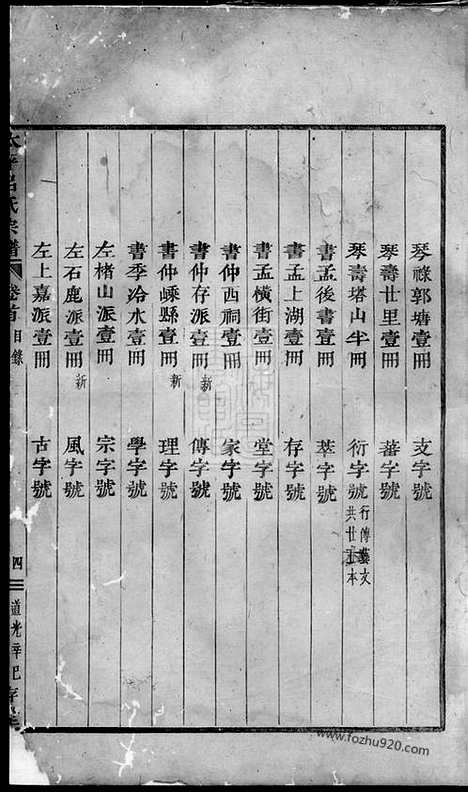 琴祿郭塘壹冊 支字號
琴壽廿里壹冊 蕃字號
琴壽塔山半冊 衍字號 行傳藝文
共廿五本
書孟後書壹冊 萃字號
書孟上湖壹冊 存字號
書孟橫街壹冊 堂字號
書仲西祠壹冊 家字號
書仲存派壹冊 新 傳字號
書仲嵊縣壹冊 新 理字號
書季冾水壹冊 學字號
左楮山派壹冊 宗字號
左石鹿派壹冊 新 風字號
左上嘉派壹冊 古字號
呂氏宗譜 卷首 目錄 四 道光辛巳
www.fozhu920.com